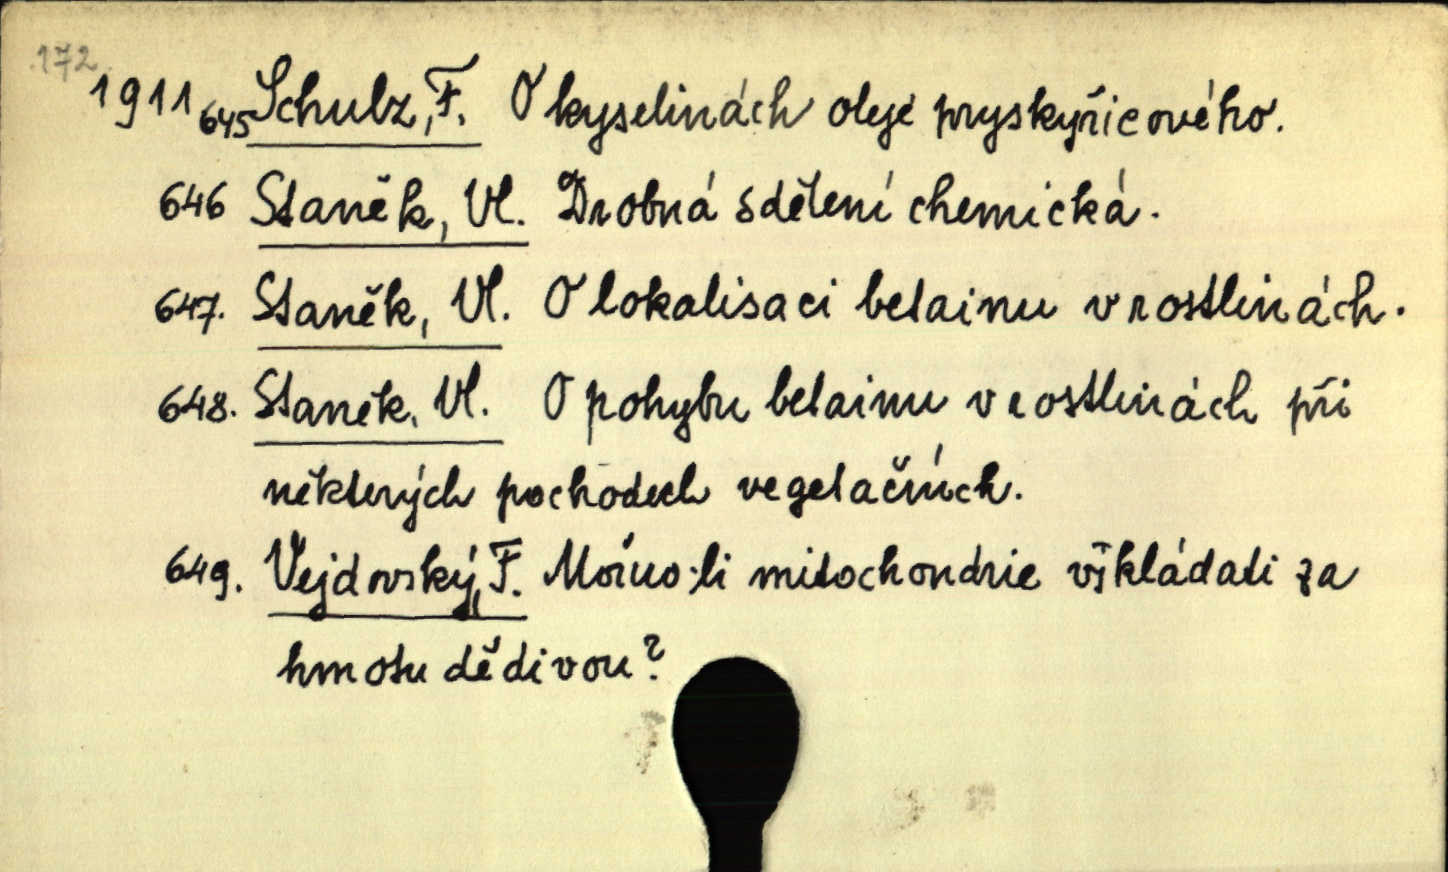 172
1911 645 Schulz, F. O kyselinách oleje pryskyřicového.
646 Staněk, Vl. Drobná sdělení chemická.
647. Staněk, Vl. O lokalisaci betainu v rostlinách.
648. Staněk, Vl. O pohybu betainu v rostlinách při
některých pochodech vegetačních.
649. Vejdovský, F. Možno-li mitochondrie výkládati za
hmotu dědivou?